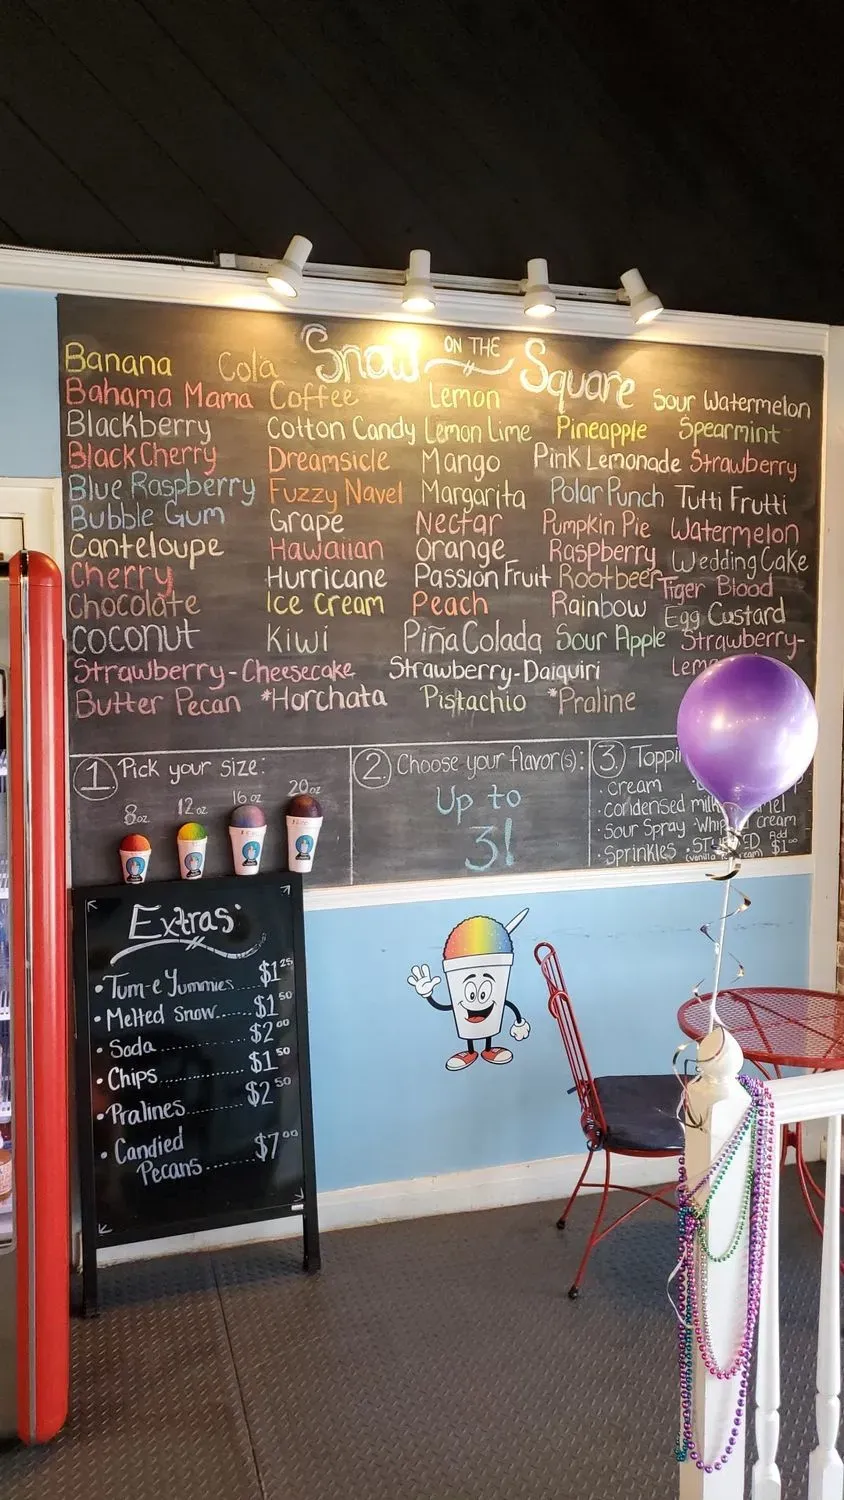 Snow ON THE Square
Banana
Bahama Mama
Blackberry
Black Cherry
Blue Raspberry
Bubble Gum
Canteloupe
Cherry
Chocolate
Coconut
Strawberry-Cheesecake
Butter Pecan
Cola
Coffee
Cotton Candy
Dreamsicle
Fuzzy Navel
Grape
Hawaiian
Hurricane
Ice Cream
Kiwi
*Horchata
Lemon
Lemon Lime
Mango
Margarita
Nectar
Orange
Passion Fruit
Peach
Piña Colada
Strawberry-Daiquiri
Pistachio
Pineapple
Pink Lemonade
Polar Punch
Pumpkin Pie
Raspberry
Rootbeer
Rainbow
Sour Apple
*Praline
Sour Watermelon
Spearmint
Strawberry
Tutti Frutti
Watermelon
Wedding Cake
Tiger Blood
Egg Custard
Strawberry-
1 Pick your size:
8oz
12oz
16oz
20oz
2. Choose your flavor(s):
Up to
3!
3.
• cream
• condensed milk
• Sour Spray • Whip cream
• Sprinkles Add $1⁰⁰
Extras:
• Tum-e Yummies... $1²⁵
• Melted Snow...... $1⁵⁰
• Soda............ $2⁰⁰
• Chips............ $1⁵⁰
• Pralines......... $2⁵⁰
• Candied
Pecans........ $7⁰⁰